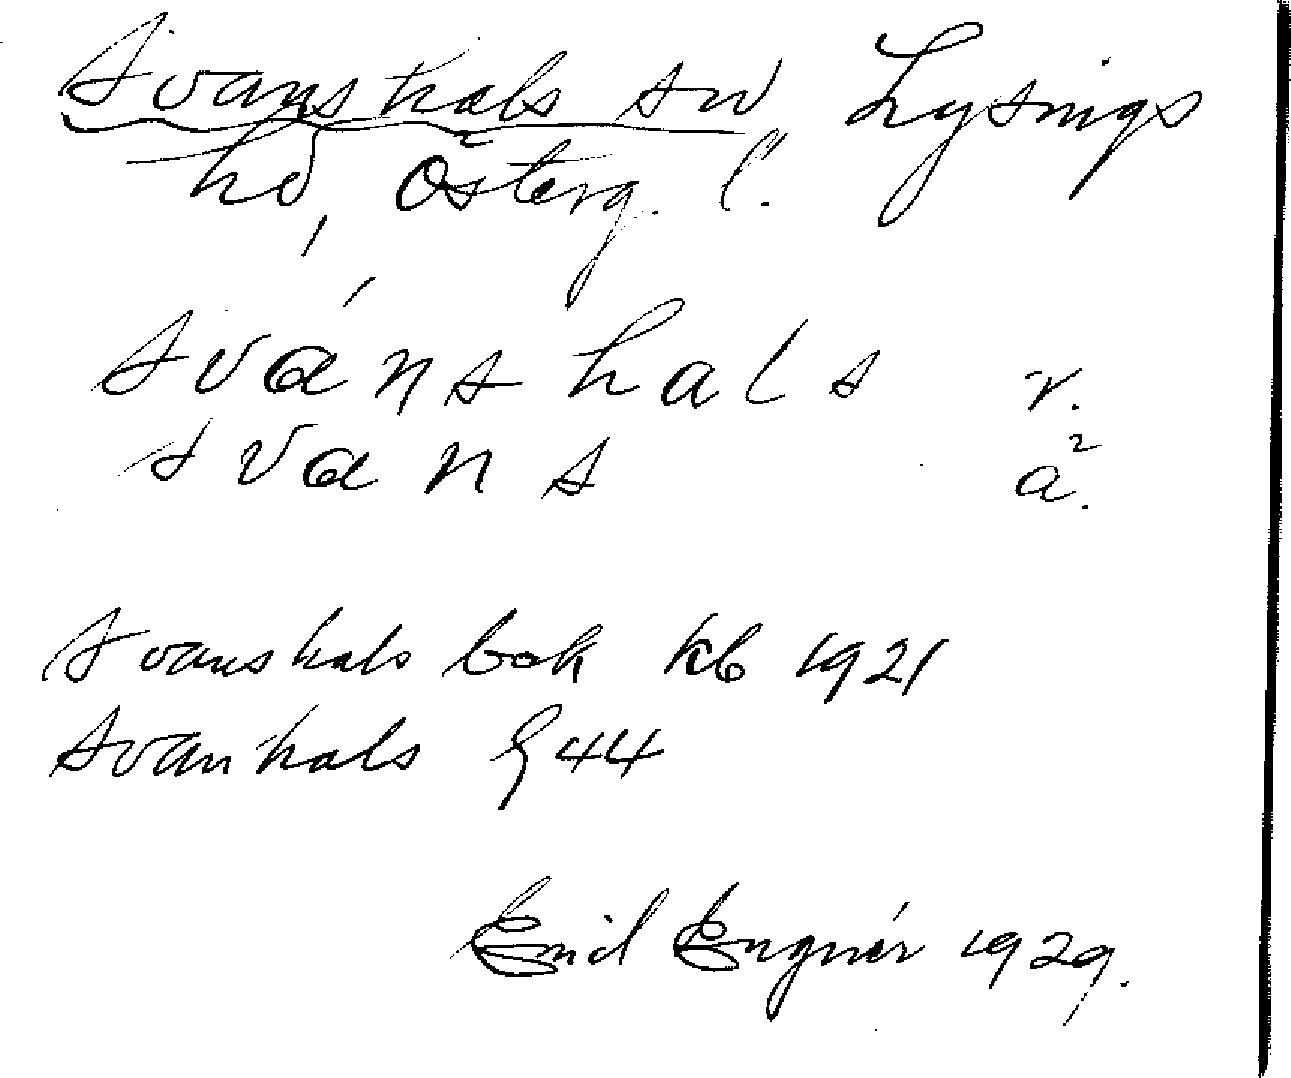 Svanshals sn Lysings
hd, Österg. l.
svánshals r.
svans a².
Svanshals bok kb 1921
Svanhals § 44
Emil Engnér 1929.